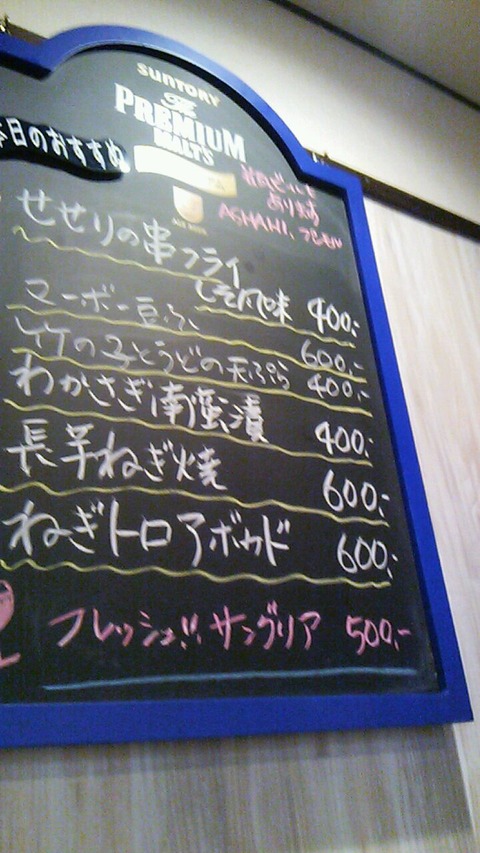 SUNTORY
The
PREMIUM
MALT'S
本日のおすすめ
あります
せせりの串フライ
しそ風味 400.-
マーボー豆ふ 600.-
竹の子とうどの天ぷら 400.-
わかさぎ南蛮漬 400.-
長芋ねぎ焼 600.-
ねぎトロアボカド 600.-
フレッシュ!! サングリア 500.-